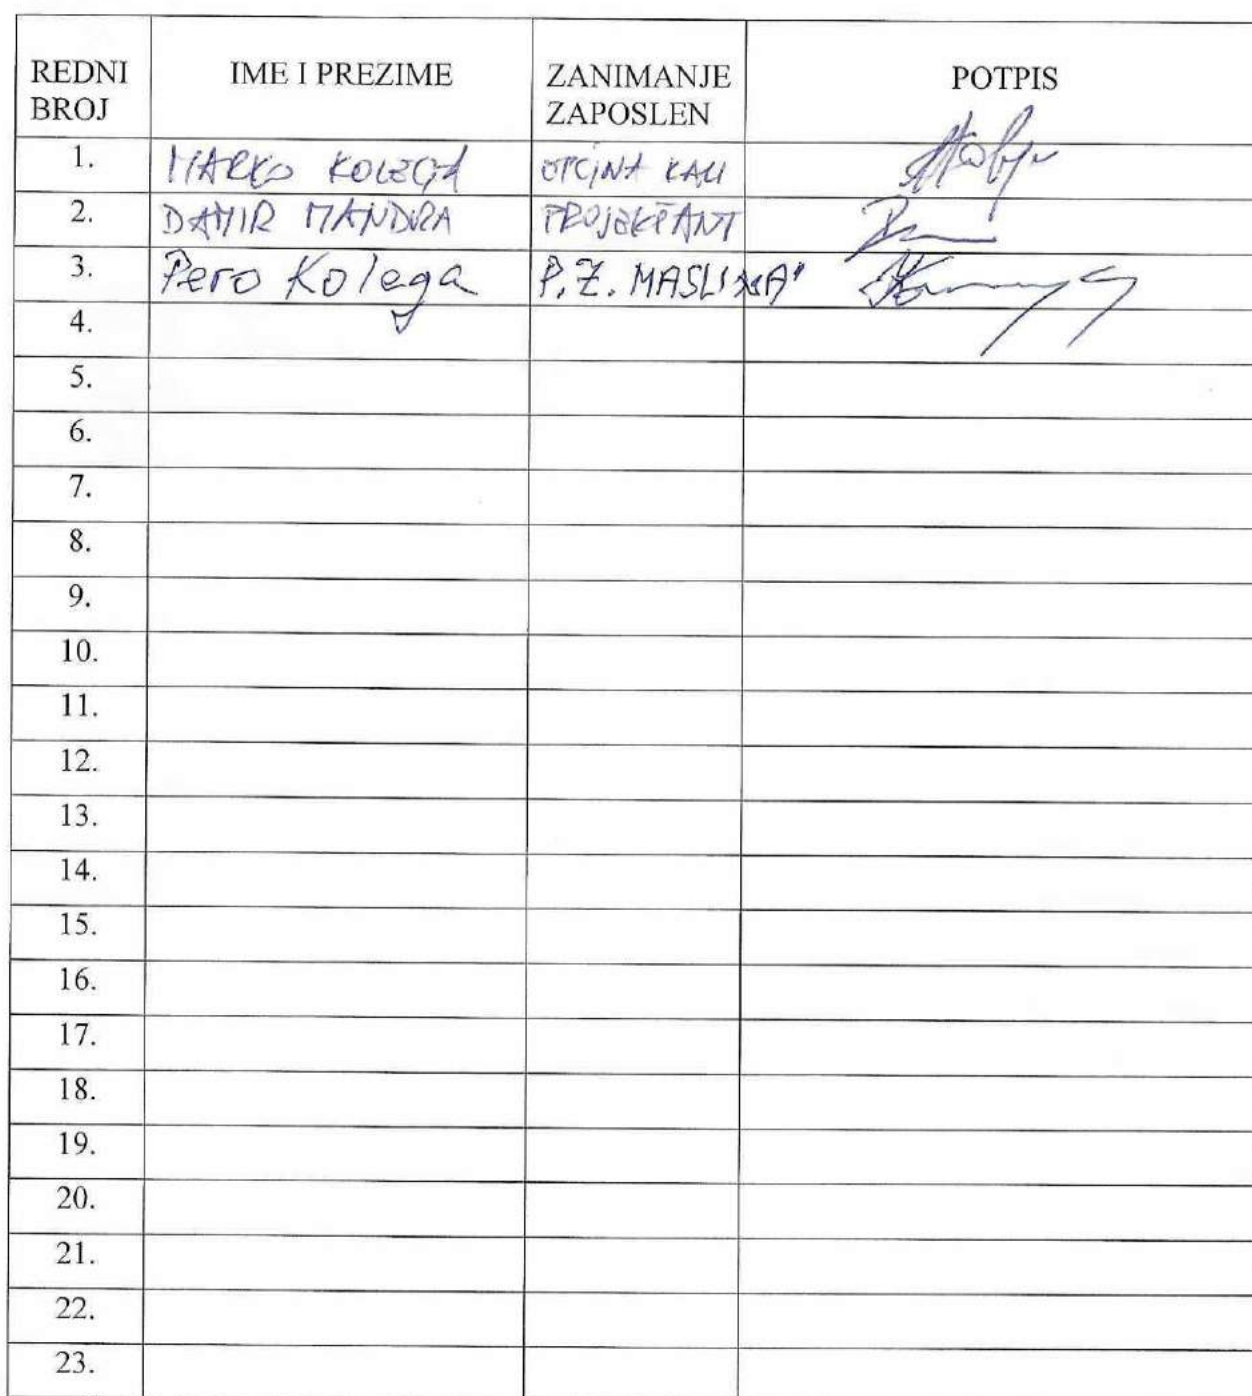 REDNI BROJ IME I PREZIME ZANIMANJE ZAPOSLEN POTPIS
1. MARKO KOLEGA OPĆINA KALI
2. DAMIR MANDRA PROJEKTANT
3. Pero Kolega P.Z. MASLINA"
4.
5.
6.
7.
8.
9.
10.
11.
12.
13.
14.
15.
16.
17.
18.
19.
20.
21.
22.
23.